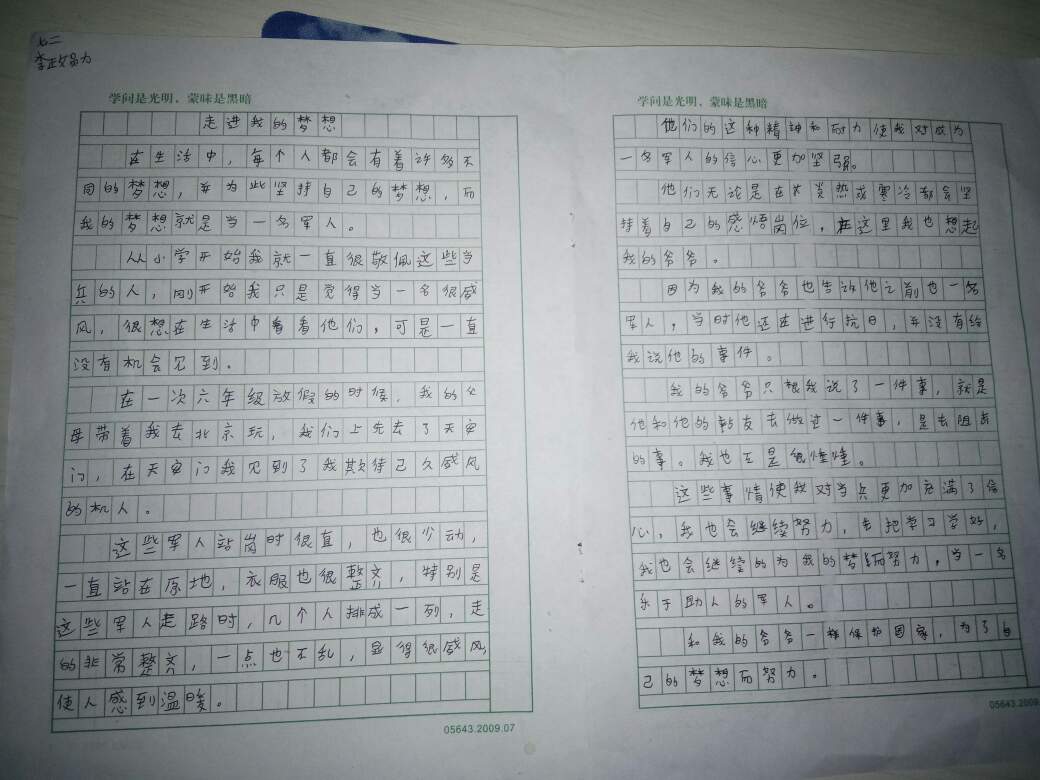 七二
李政
学问是光明，蒙昧是黑暗
走进我的梦想
在生活中，每个人都会有着许多不
同的梦想，并为此坚持自己的梦想，而
我的梦想就是当一名军人。
从小学开始我就一直很敬佩这些当
兵的人，刚开始我只是觉得当一名很威
风，很想在生活中看看他们，可是一直
没有机会见到。
在一次六年级放假的时候，我的父
母带着我去北京玩，我们上先去了天安
门，在天安门我见到了我期待已久威风
的机人。
这些军人站岗时很直，也很少动，
一直站在原地，衣服也很整齐，特别是
这些军人走路时，几个人排成一列，走
的非常整齐，一点也不乱，显得很威风，
使人感到温暖。
05643.2009.07
学问是光明，蒙昧是黑暗
他们的这种精神和耐力使我对成为
一名军人的信心更加坚强。
他们无论是在炎热或寒冷都会坚
持着自己的感悟岗位，在这里我也想起
我的爷爷。
因为我的爷爷也告诉他之前也一名
军人，当时他还在进行抗日，并没有给
我说他的事件。
我的爷爷只跟我说了一件事，就是
他和他的战友去做过一件事，是去阻击
的事。我也正是很懂懂。
这些事情使我对当兵更加充满了信
心，我也会继续努力，去把学习学好，
我也会继续的为我的梦而努力，当一名
乐于助人的军人。
和我的爷爷一样保护国家，为了自
己的梦想而努力。
05643.2009